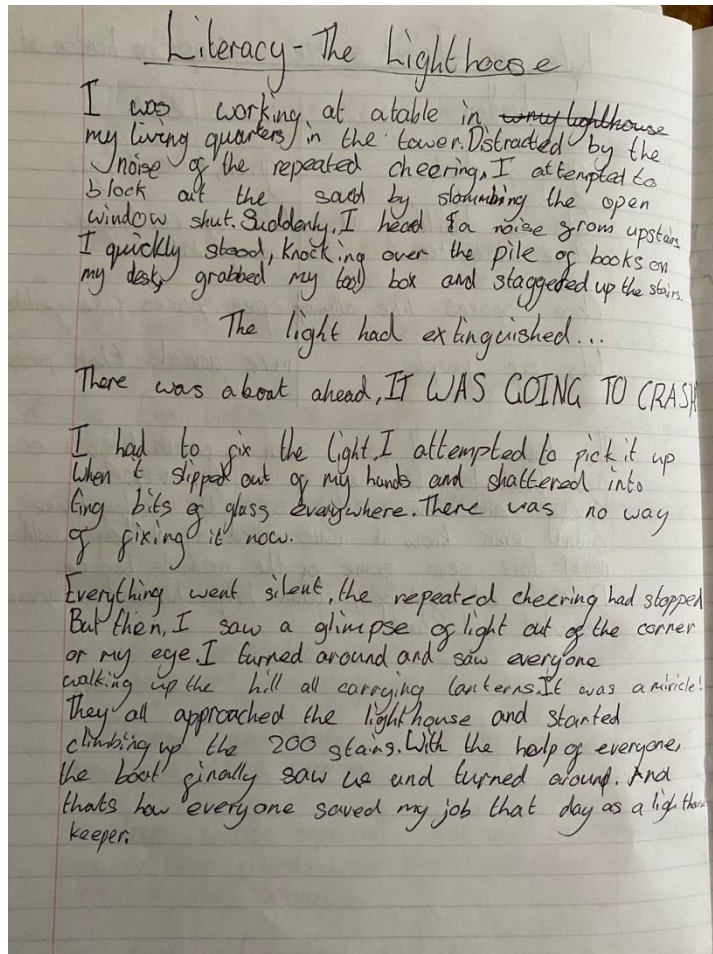 Literacy - The Lighthouse
I was working at a table in my lighthouse
my living quarters in the tower. Distracted by the
noise of the repeated cheering, I attempted to
block out the sound by slamming the open
window shut. Suddenly, I heard a noise from upstairs.
I quickly stood, knocking over the pile of books on
my desk, grabbed my tool box and staggered up the stairs.
The light had extinguished...
There was a boat ahead, IT WAS GOING TO CRASH
I had to fix the light. I attempted to pick it up
when it slipped out of my hands and shattered into
tiny bits of glass everywhere. There was no way
of fixing it now.
Everything went silent, the repeated cheering had stopped
But then, I saw a glimpse of light out of the corner
or my eye. I turned around and saw everyone
walking up the hill all carrying lanterns. It was a miricle!
They all approached the lighthouse and started
climbing up the 200 stairs. With the help of everyone,
the boat finally saw us and turned around. And
thats how everyone saved my job that day as a lighthouse
keeper.